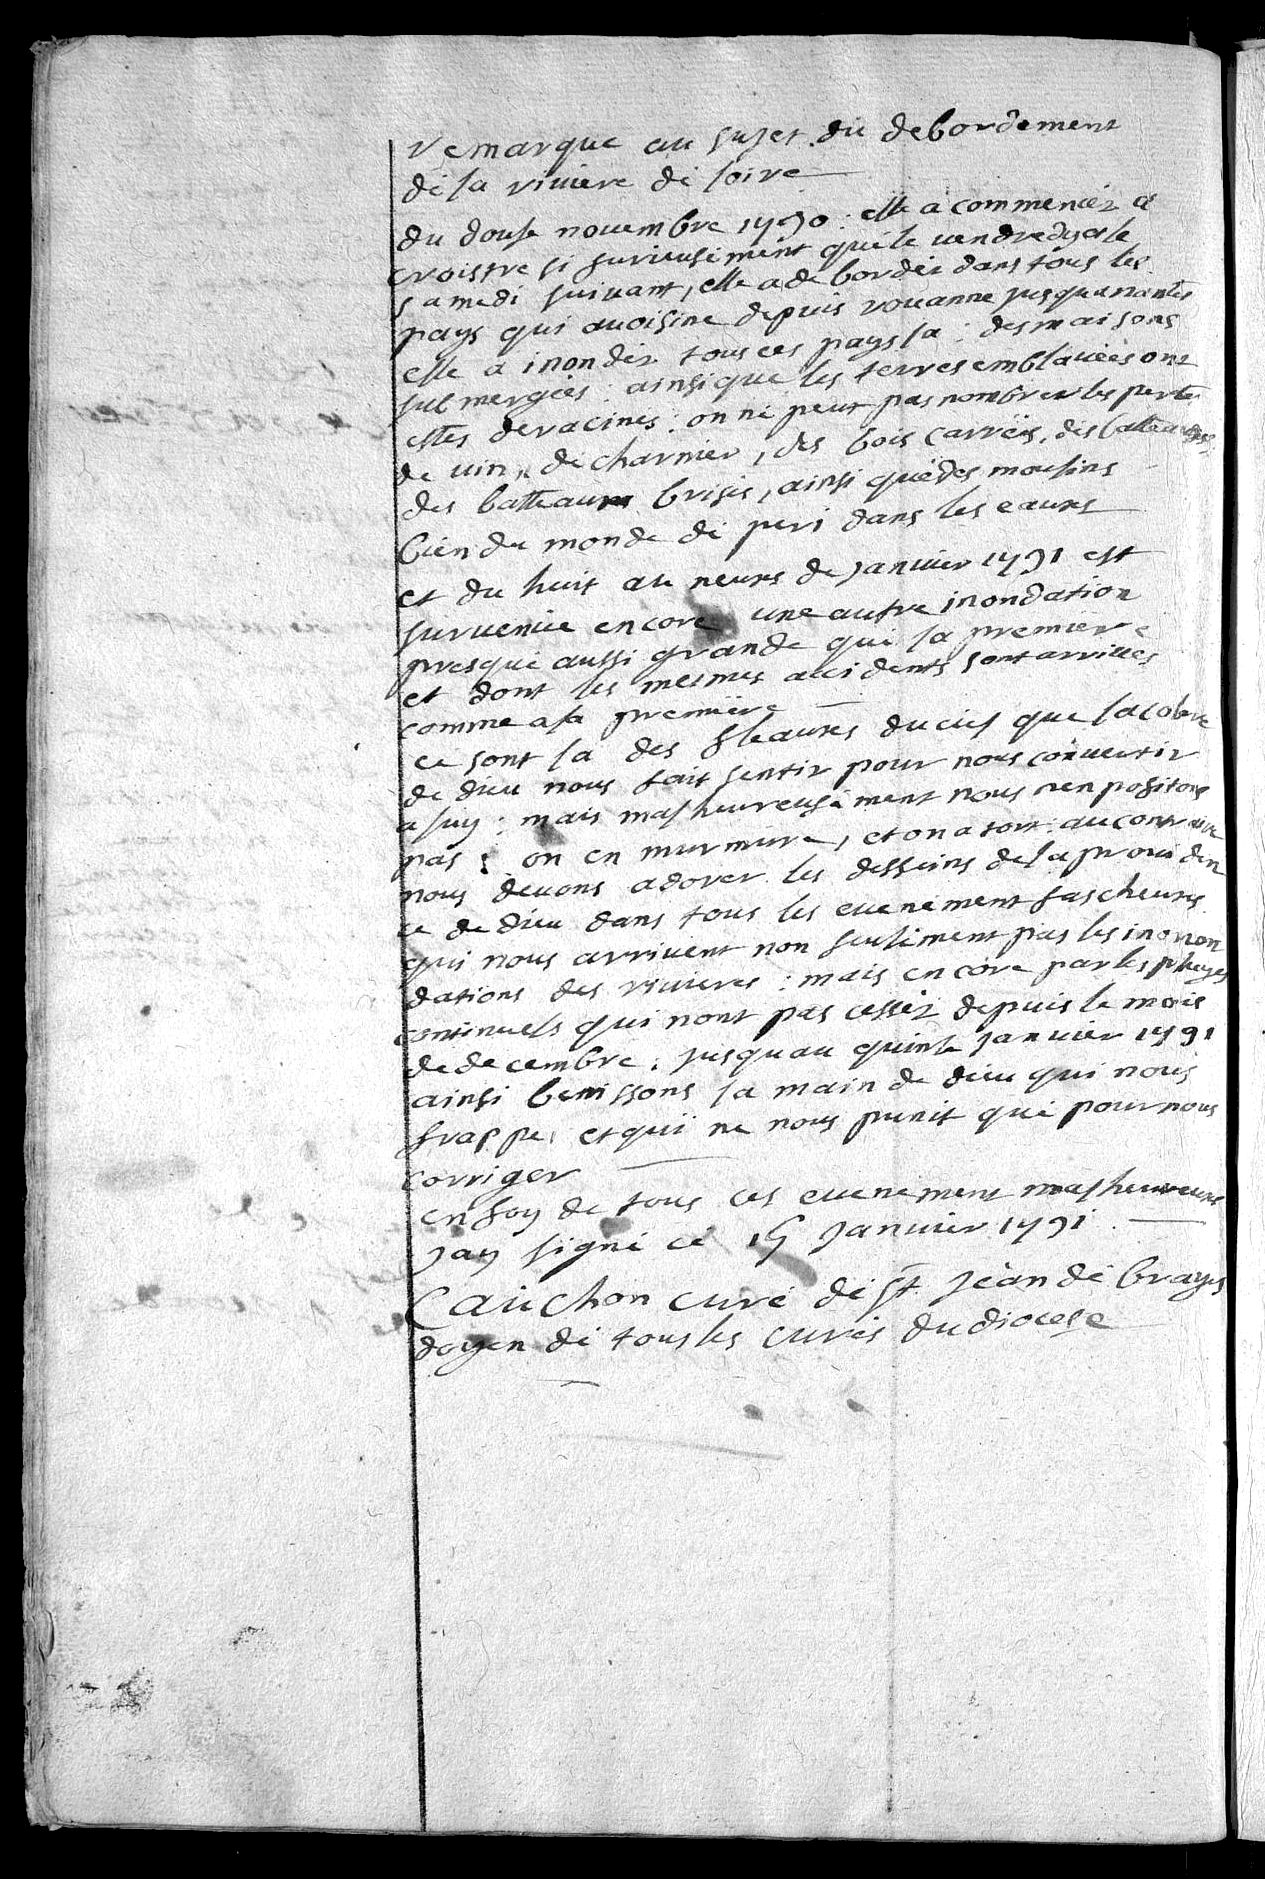 remarque au sujet du debordement
de la riviere de loire
du douse novembre 1790 : elle a commencez a
croistre si furieusement que le vendredy et le
samedi suivant, elle a debordéz dans tous les
pays qui avoisine depuis rouanne jusqua nantes
elle a inondéz tous ces pays la : des maisons
submergées : ainsi que les terres emblavées ont
estes deracines : on ne peut pas nombrer les pertes
de vin, de charnier, des bois carrées, des batteaux
des batteaux brisés, ainsi que des moulins
bien du monde de peri dans les eaux
et du huit au neuf de janvier 1791 est
survenue encore une autre inondation
presque aussi grande que la premiere
et dont les mesmes accidents sont arrivées
comme a la premiere
ce sont la des fleaux du ciel que la colere
de dieu nous fait sentir pour nous convertir
a luy : mais malheureusement nous nen profitons
pas : on en murmure, et on a tort : au contraire
nous devons adorer les desseins de la providen
ce de dieu dans tous les evenement fascheux
qui nous arrivent non seulement pas les inonon
dations des rivieres : mais encore par les pluyes
continuels qui nont pas cesséz depuis le mois
de decembre, jusquau quinze janvier 1791
ainsi benissons la main de dieu qui nous
frappe, et qui ne nous punit que pour nous
corriger
en foy de tous ces evenement malheureux
jay signé ce 15 janvier 1791
Cauchon curé de st jean de brayes
doyen de tous les curés du diocese